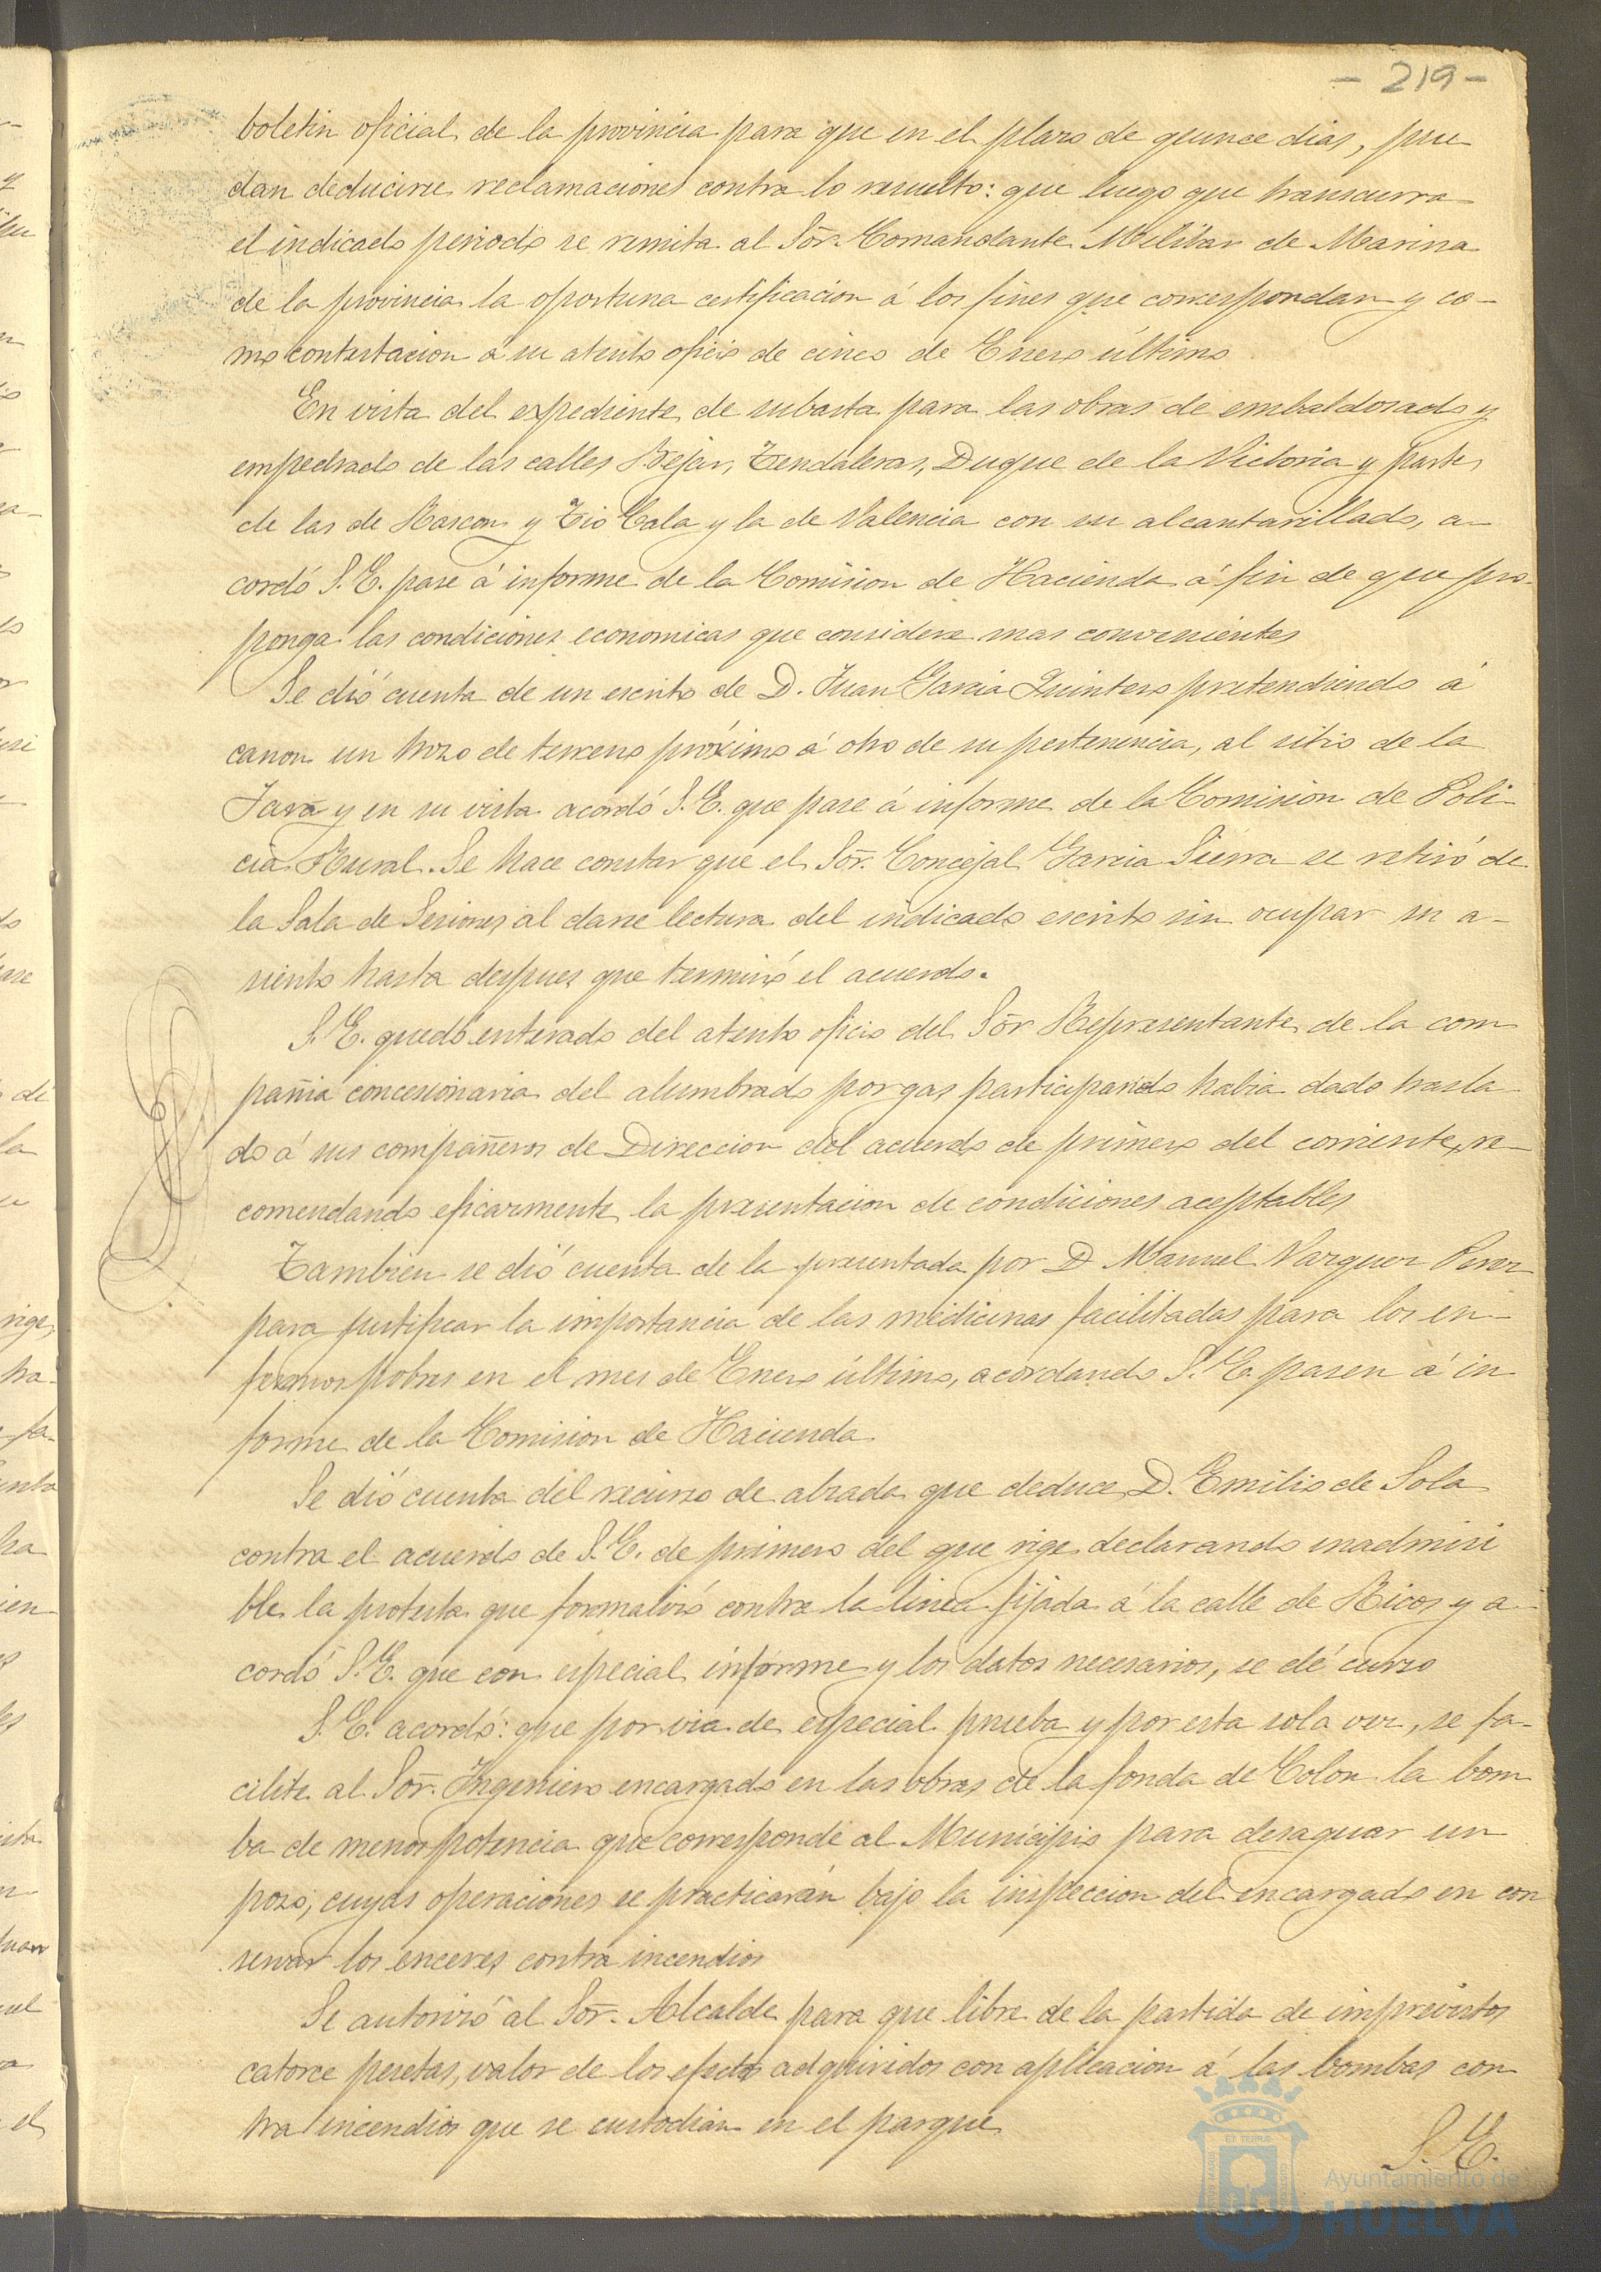 - 219 -
boletin oficial de la provincia para que en el plazo de quince dias, pue
dan deducirse reclamaciones contra lo resuelto: que luego que transcurra
el indicado periodo se remita al Sōr. Comandante Militar de Marina
de la provincia la oportuna certificacion á los fines que correspondan y co-
mo contestacion á su atento oficio de cinco de Enero último
En vista del expediente de subasta para las obras de embaldosado y
empedrado de las calles Bejar, Tendaleras, Duque de la Victoria y parte
de las de Rascon y Tio Cala y la de Valencia con su alcantarillado, a-
cordó S.E. pase á informe de la Comision de Hacienda á fin de que pro-
ponga las condiciones economicas que considere mas convenientes
Se dió cuenta de un escrito de D. Juan Garcia Quintero pretendiendo á
canon un trozo de terreno próximo á otro de su pertenencia, al sitio de la
Jara y en su vista acordó S.E. que pase á informe de la Comision de Poli-
cia Rural. Se hace constar que el Sōr. Concejal Garcia Sierra se retiró de
la Sala de Sesiones al darse lectura del indicado escrito sin ocupar su a-
siento hasta despues que terminó el acuerdo.
S.E. quedó enterado del atento oficio del Sōr Representante de la com
pañia concesionaria del alumbrado por gas participando habia dado trasla
do á sus compañeros de Direccion del acuerdo de primero del corriente, re-
comendando eficazmente la presentacion de condiciones aceptables
Tambien se dió cuenta de la presentada por D Manuel Vazquez Perez
para justificar la importancia de las medicinas facilitadas para los en-
fermos pobres en el mes de Enero último, acordando S.E. pasen á in
forme de la Comision de Hacienda
Se dió cuenta del recurso de alzada que deduce D. Emilio de Sola
contra el acuerdo de S.E. de primero del que rige declarando inadmisi
ble la protesta que formalizó contra la linea fijada á la calle de Ricos y a-
cordó S.E. que con especial informe y los datos necesarios, se dé curso
S.E. acordó: que por via de especial prueba y por esta sola vez, se fa-
cilite al Sōr. Ingeniero encargado en las obras de la fonda de Colon la bom
ba de menor potencia que corresponde al Municipio para desaguar un
pozo, cuyas operaciones se practicarán bajo la inspeccion del encargado en con
servar los enceres contra incendios
Se autorizó al Sōr. Alcalde para que libre de la partida de imprevistos
catorce pesetas, valor de los efectos adquiridos con aplicacion á las bombas con
tra incendios que se custodian en el parque
S. E.
Ayuntamiento de
HUELVA